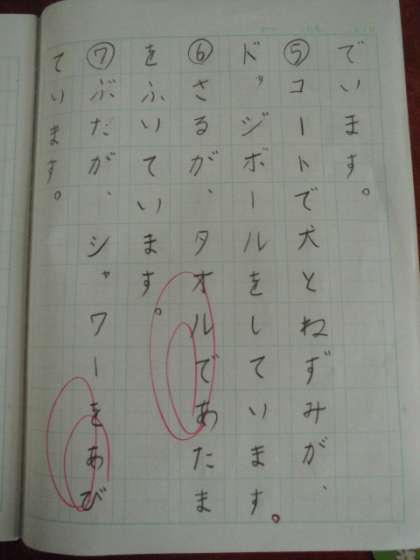 でいます。
⑤コートで犬とねずみが、
ドッジボールをしています。
⑥さるが、タオルであたま
をふいています。
⑦ぶたが、シャワーをあび
ています。